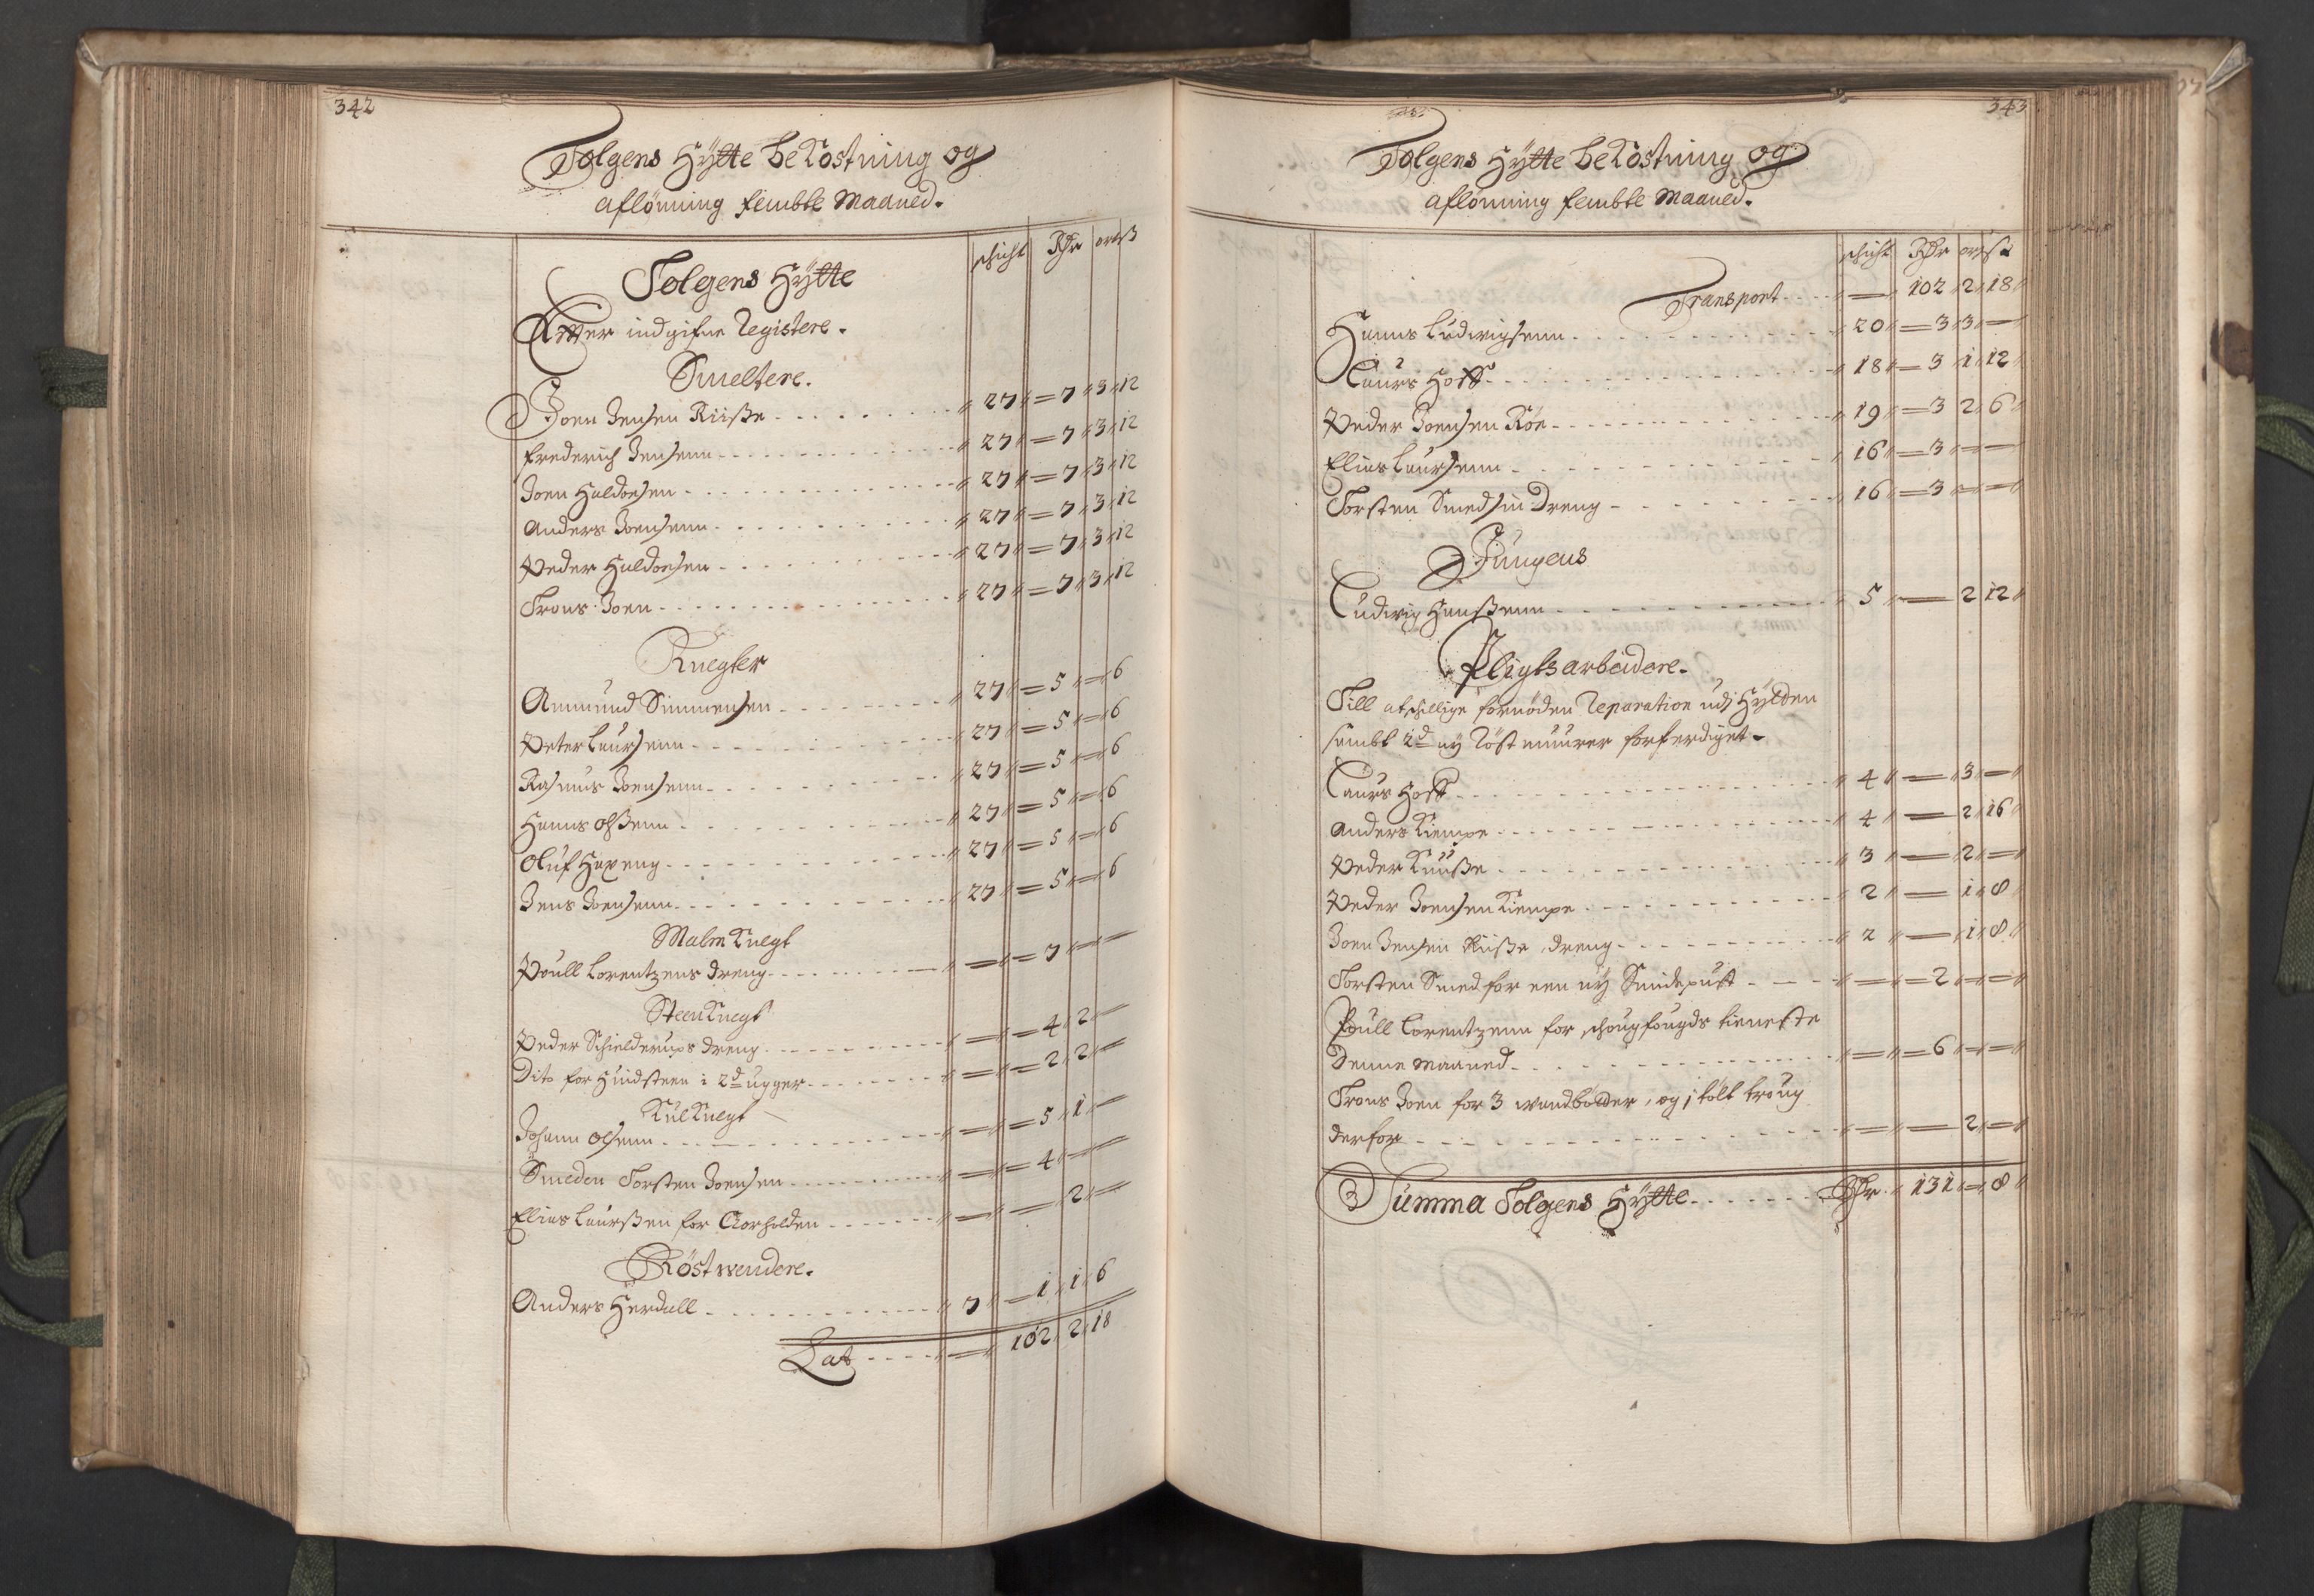 342
Tolgens Hÿtte beKostning og
aflønning fembte Maaned.
schicht Rdr ort ß
Tolgens Hÿtte
Efter indgifne Registere.
Smeltere.
Joen Jensen Riiße - - - 27 = 7 3 12
Frederich Jensenn - - - 27 = 7 3 12
Joen Haldorsen - - - 27 = 7 3 12
Anders Joensenn - - - 27 = 7 3 12
Peder Haldorsen - - - 27 = 7 3 12
Trons Joen - - - 27 = 7 3 12
Knegter
Ammund Simmensen - - - 27 = 5 = 6
Peter Laursenn - - - 27 = 5 = 6
Rasmus Joensenn - - - 27 = 5 = 6
Hanns Olßenn - - - 27 = 5 = 6
Oluf Haveng - - - 27 = 5 = 6
Jens Joensenn - - - 27 = 5 = 6
Malm Knegt
Poull Lorentzens dreng - - - = = 7 = =
Steen Knegt
Peder Schielderups dreng - - - = = 4 2 =
Dito for Huidsteen i 2d ugger - - - = = 2 2 =
Kul Knegt
Johann Olsenn - - - = = 5 1 =
Smeden Torsten Joensen - - - = = 4 = =
Elias Laurßen for Aorholden - - - = = = 2 =
Röstwendere.
Anders Herdall - - - 7 = 1 1 6
Lat - - - = 102 2 18
343
Tolgens Hÿtte beKostning og
aflønning fembte Maaned.
schicht Rdr ort ß
Transport - - - = 102 2 18
Hanns Ludwigsenn - - - 20 = 3 3 =
Laurs Hoff - - - 18 = 3 1 12
Peder Joensen Röe - - - 19 = 3 2 6
Elias Laursenn - - - 16 = 3 = =
Torsten Smed sin Dreng - - - 16 = 3 = =
Jungens
Ludwig Hanßenn - - - 5 = 2 12
Pligtsarbeidere.
Till atschillige fornøden Reparation udj Hÿtden
sambt 2d nÿ Röst muurer forferdiget.
Laurs Hoff - - - 4 = 3 =
Anders Kiempe - - - 4 = 2 16
Peder Kuuße - - - 3 = 2 =
Peder Joensen Kiempe - - - 2 = 1 8
Joen Jensen Riiße, dreng - - - 2 = 1 8
Torsten Smed for een nÿ Smidepust - - - = = 2 = =
Poull Lorentzenn for schougfougds tieneste
Denne Maaned - - - = = 6 = =
Trons Joen for 3 wandbötter, og j tolt troug
derfor - - - = = 2 =
Summa Tolgens Hÿtte - - - Rdr 131 = 8